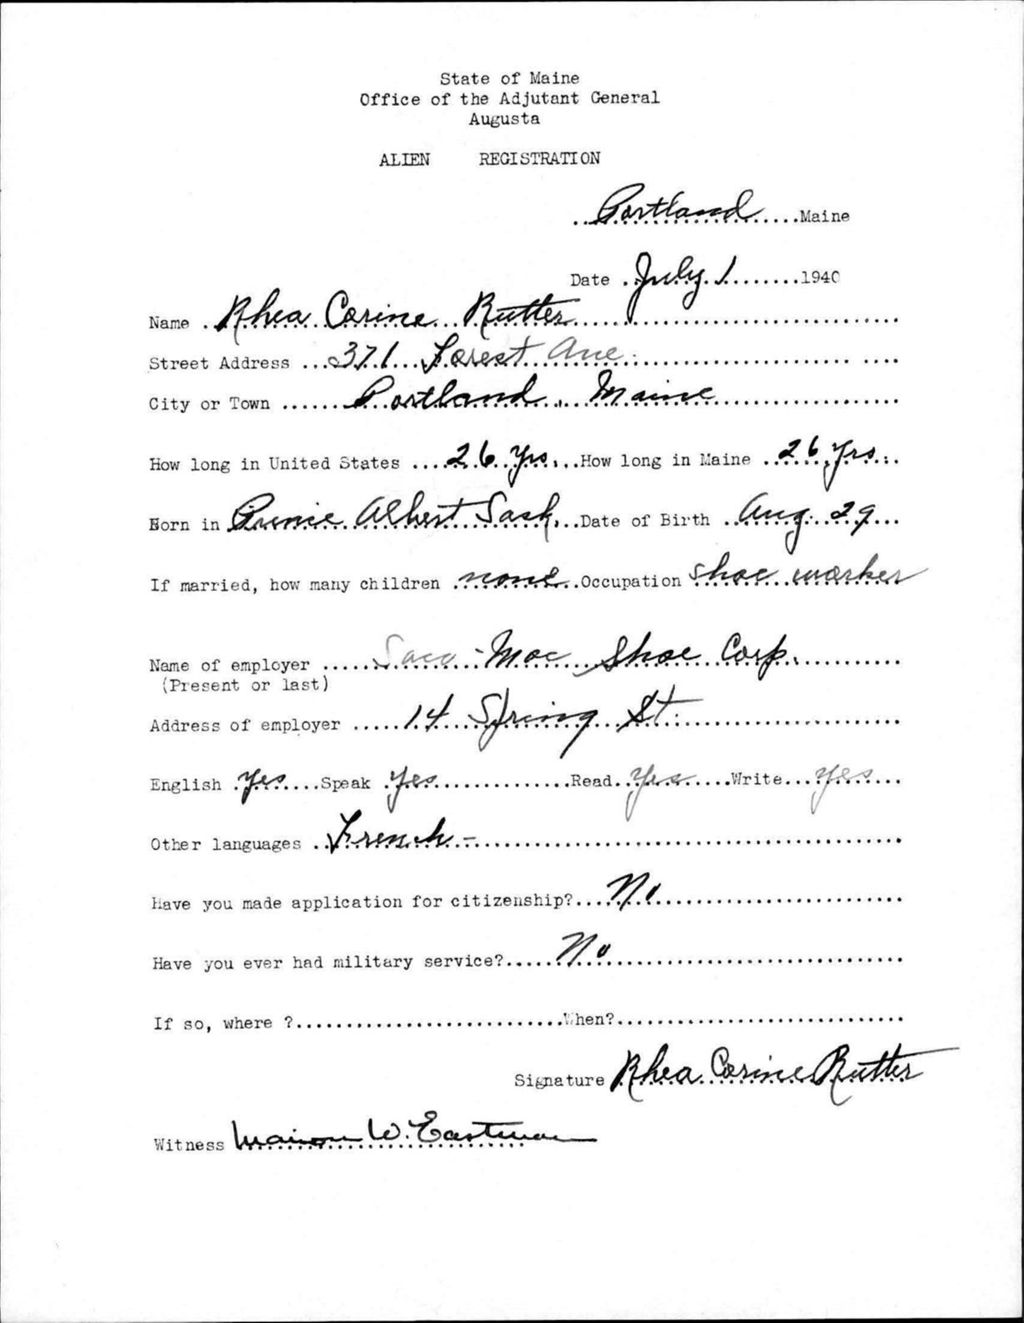 State of Maine
Office of the Adjutant General
Augusta
ALIEN REGISTRATION
Portland Maine
Date July 1 1940
Name Rhea Corine Rutter
Street Address 371 Forest Ave.
City or Town Portland, Maine
How long in United States 26 Yrs. How long in Maine 26 Yrs.
Born in Prince Albert Sask. Date of Birth Aug. 29
If married, how many children none Occupation Shoe worker
Name of employer Saco-Moc Shoe Corp.
(Present or last)
Address of employer 14 Spring St.
English Yes Speak Yes Read Yes Write Yes
Other languages French -
Have you made application for citizenship? No
Have you ever had military service? No
If so, where ? When?
Signature Rhea Corine Rutter
Witness Marion W. Eastman